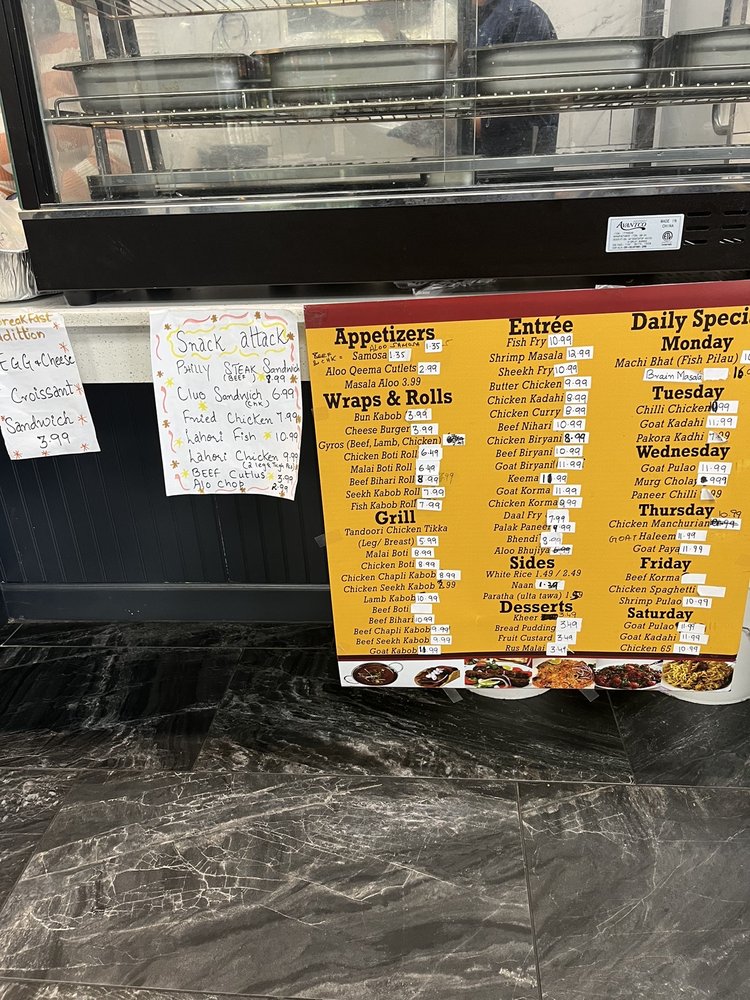 AVANTCO
MADE IN
CHINA
Breakfast
Addition
Egg & Cheese
Croissant
Sandwich
3.99
Snack attack
Philly STEAK Sandwich
(BEEF) 8.99
Club Sandwich 6.99
(CHK)
Fried Chicken 7.99
Lahori Fish 10.99
Lahori Chicken 9.99
(2 leg & Thigh Pcs)
BEEF Cutlus 3.99
Alo chop 2.99
Appetizers
ALOO SAMOSA
Samosa 1.35 1.35
Aloo Qeema Cutlets 2.99
Masala Aloo 3.99
Wraps & Rolls
Bun Kabob 3.99
Cheese Burger 3.99
Gyros (Beef, Lamb, Chicken)
Chicken Boti Roll 6.49
Malai Boti Roll 6.49
Beef Bihari Roll
Seekh Kabob Roll 7.99
Fish Kabob Roll 7.99
Grill
Tandoori Chicken Tikka
(Leg/ Breast) 5.99
Malai Boti 8.99
Chicken Boti 8.99
Chicken Chapli Kabob 8.99
Chicken Seekh Kabob
Lamb Kabob 10.99
Beef Boti
Beef Bihari 10.99
Beef Chapli Kabob 9.99
Beef Seekh Kabob 9.99
Goat Kabob 11.99
Entrée
Fish Fry 10.99
Shrimp Masala 12.99
Sheekh Fry 10.99
Butter Chicken 9.99
Chicken Kadahi 8.99
Chicken Curry 8.99
Beef Nihari 10.99
Chicken Biryani 8.99
Beef Biryani 10.99
Goat Biryani 11.99
Keema 11.99
Goat Korma 11.99
Chicken Korma 9.99
Daal Fry 7.99
Palak Paneer 9.99
Bhendi
Aloo Bhujiya
Sides
White Rice 1.49 / 2.49
Naan 1.39
Paratha (ulta tawa) 1.50
Desserts
Kheer 3.49
Bread Pudding 3.49
Fruit Custard 3.49
Rus Malai 3.49
Daily Speci
Monday
Machi Bhat (Fish Pilau)
Brain Masala
Tuesday
Chilli Chicken
Goat Kadahi 11.99
Pakora Kadhi 7.89
Wednesday
Goat Pulao 11.99
Murg Cholay
Paneer Chilli
Thursday
10.99
Chicken Manchurian
GOAT Haleem 11.99
Goat Paya 11.99
Friday
Beef Korma
Chicken Spaghetti
Shrimp Pulao 10.99
Saturday
Goat Pulao 11.99
Goat Kadahi 11.99
Chicken 65 10.99